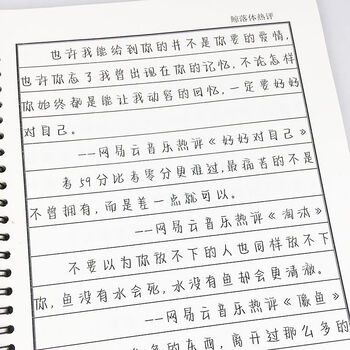 鲸落体热评
也许我能给到你的并不是你要的爱情,
也许你忘了我曾出现在你的记忆,不论怎样
你始终都是能让我动容的回忆,一定要好好
对自己。
--网易云音乐热评《好好对自己》
考59分比考零分更难过,最痛苦的不是
不曾拥有,而是差一点就可以。
--网易云音乐热评《淘汰》
不要以为你放不下的人也同样放不下
你,鱼没有水会死,水没有鱼却会更清澈。
--网易云音乐热评《傲鱼》
多的东西,离开过那么多的